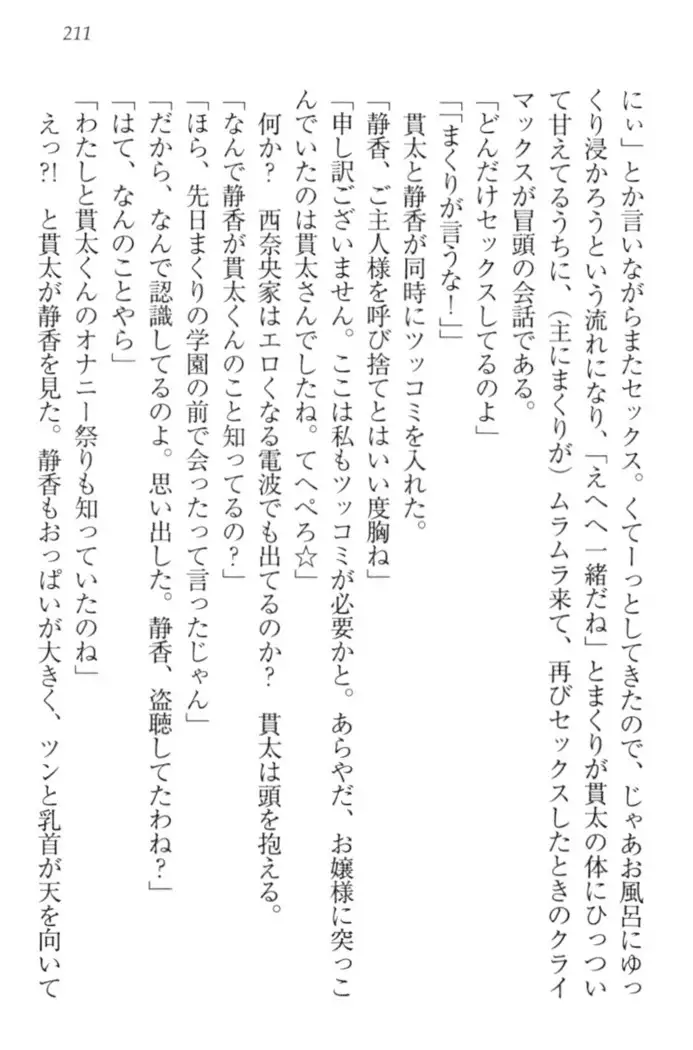 211
にぃ」とか言いながらまたセックス。くてーっとしてきたので、じゃあお風呂にゆっ
くり浸かろうという流れになり、「えへへ一緒だね」とまくりが貫太の体にひっつい
て甘えてるうちに、（主にまくりが）ムラムラ来て、再びセックスしたときのクライ
マックスが冒頭の会話である。
「どんだけセックスしてるのよ」
「「まくりが言うな！」」
貫太と静香が同時にツッコミを入れた。
「静香、ご主人様を呼び捨てとはいい度胸ね」
「申し訳ございません。ここは私もツッコミが必要かと。あらやだ、お嬢様に突っこ
んでいたのは貫太さんでしたね。てへぺろ☆」
何か？　西奈央家はエロくなる電波でも出てるのか？　貫太は頭を抱える。
「なんで静香が貫太くんのこと知ってるの？」
「ほら、先日まくりの学園の前で会ったって言ったじゃん」
「だから、なんで認識してるのよ。思い出した。静香、盗聴してたわね？」
「はて、なんのことやら」
「わたしと貫太くんのオナニー祭りも知っていたのね」
えっ？！　と貫太が静香を見た。静香もおっぱいが大きく、ツンと乳首が天を向いて